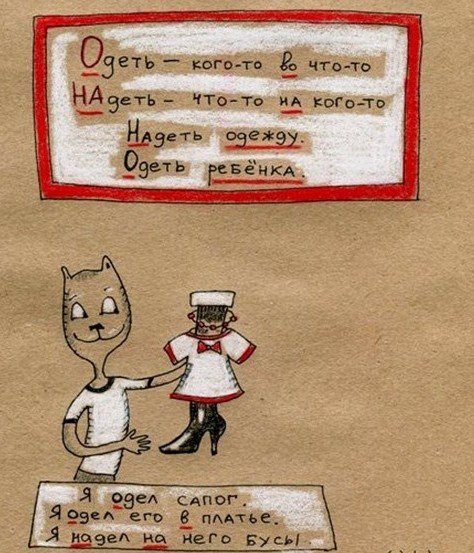 Одеть – кого-то во что-то
НАдеть – что-то на кого-то
Надеть одежду.
Одеть ребёнка.
Я одел сапог.
Я одел его в платье.
Я надел на него бусы.